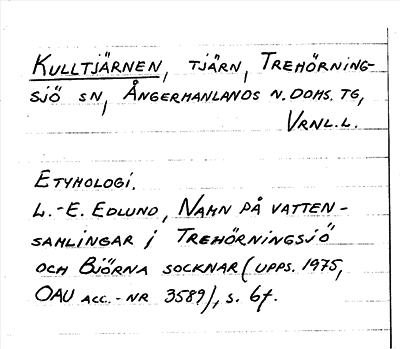 KULLTJÄRNEN, TJÄRN, TREHÖRNING-
SJÖ SN, ÅNGERMANLANDS N. DOMS. TG,
VRNL.L.
ETYMOLOGI.
L.-E. EDLUND, NAMN PÅ VATTEN-
SAMLINGAR I TREHÖRNINGSJÖ
OCH BJÖRNA SOCKNAR (UPPS. 1975,
OAU ACC.-NR 3589), S. 6f.